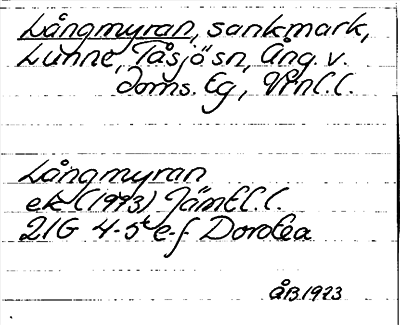 Långmyran, sankmark,
Lunne, Tåsjö sn, Ång. v.
doms. Lg, Vnl. l.
Långmyran
ek (1973) Jämtl. l.
21G 4-5 e-f Dorotea
ÅB 1973